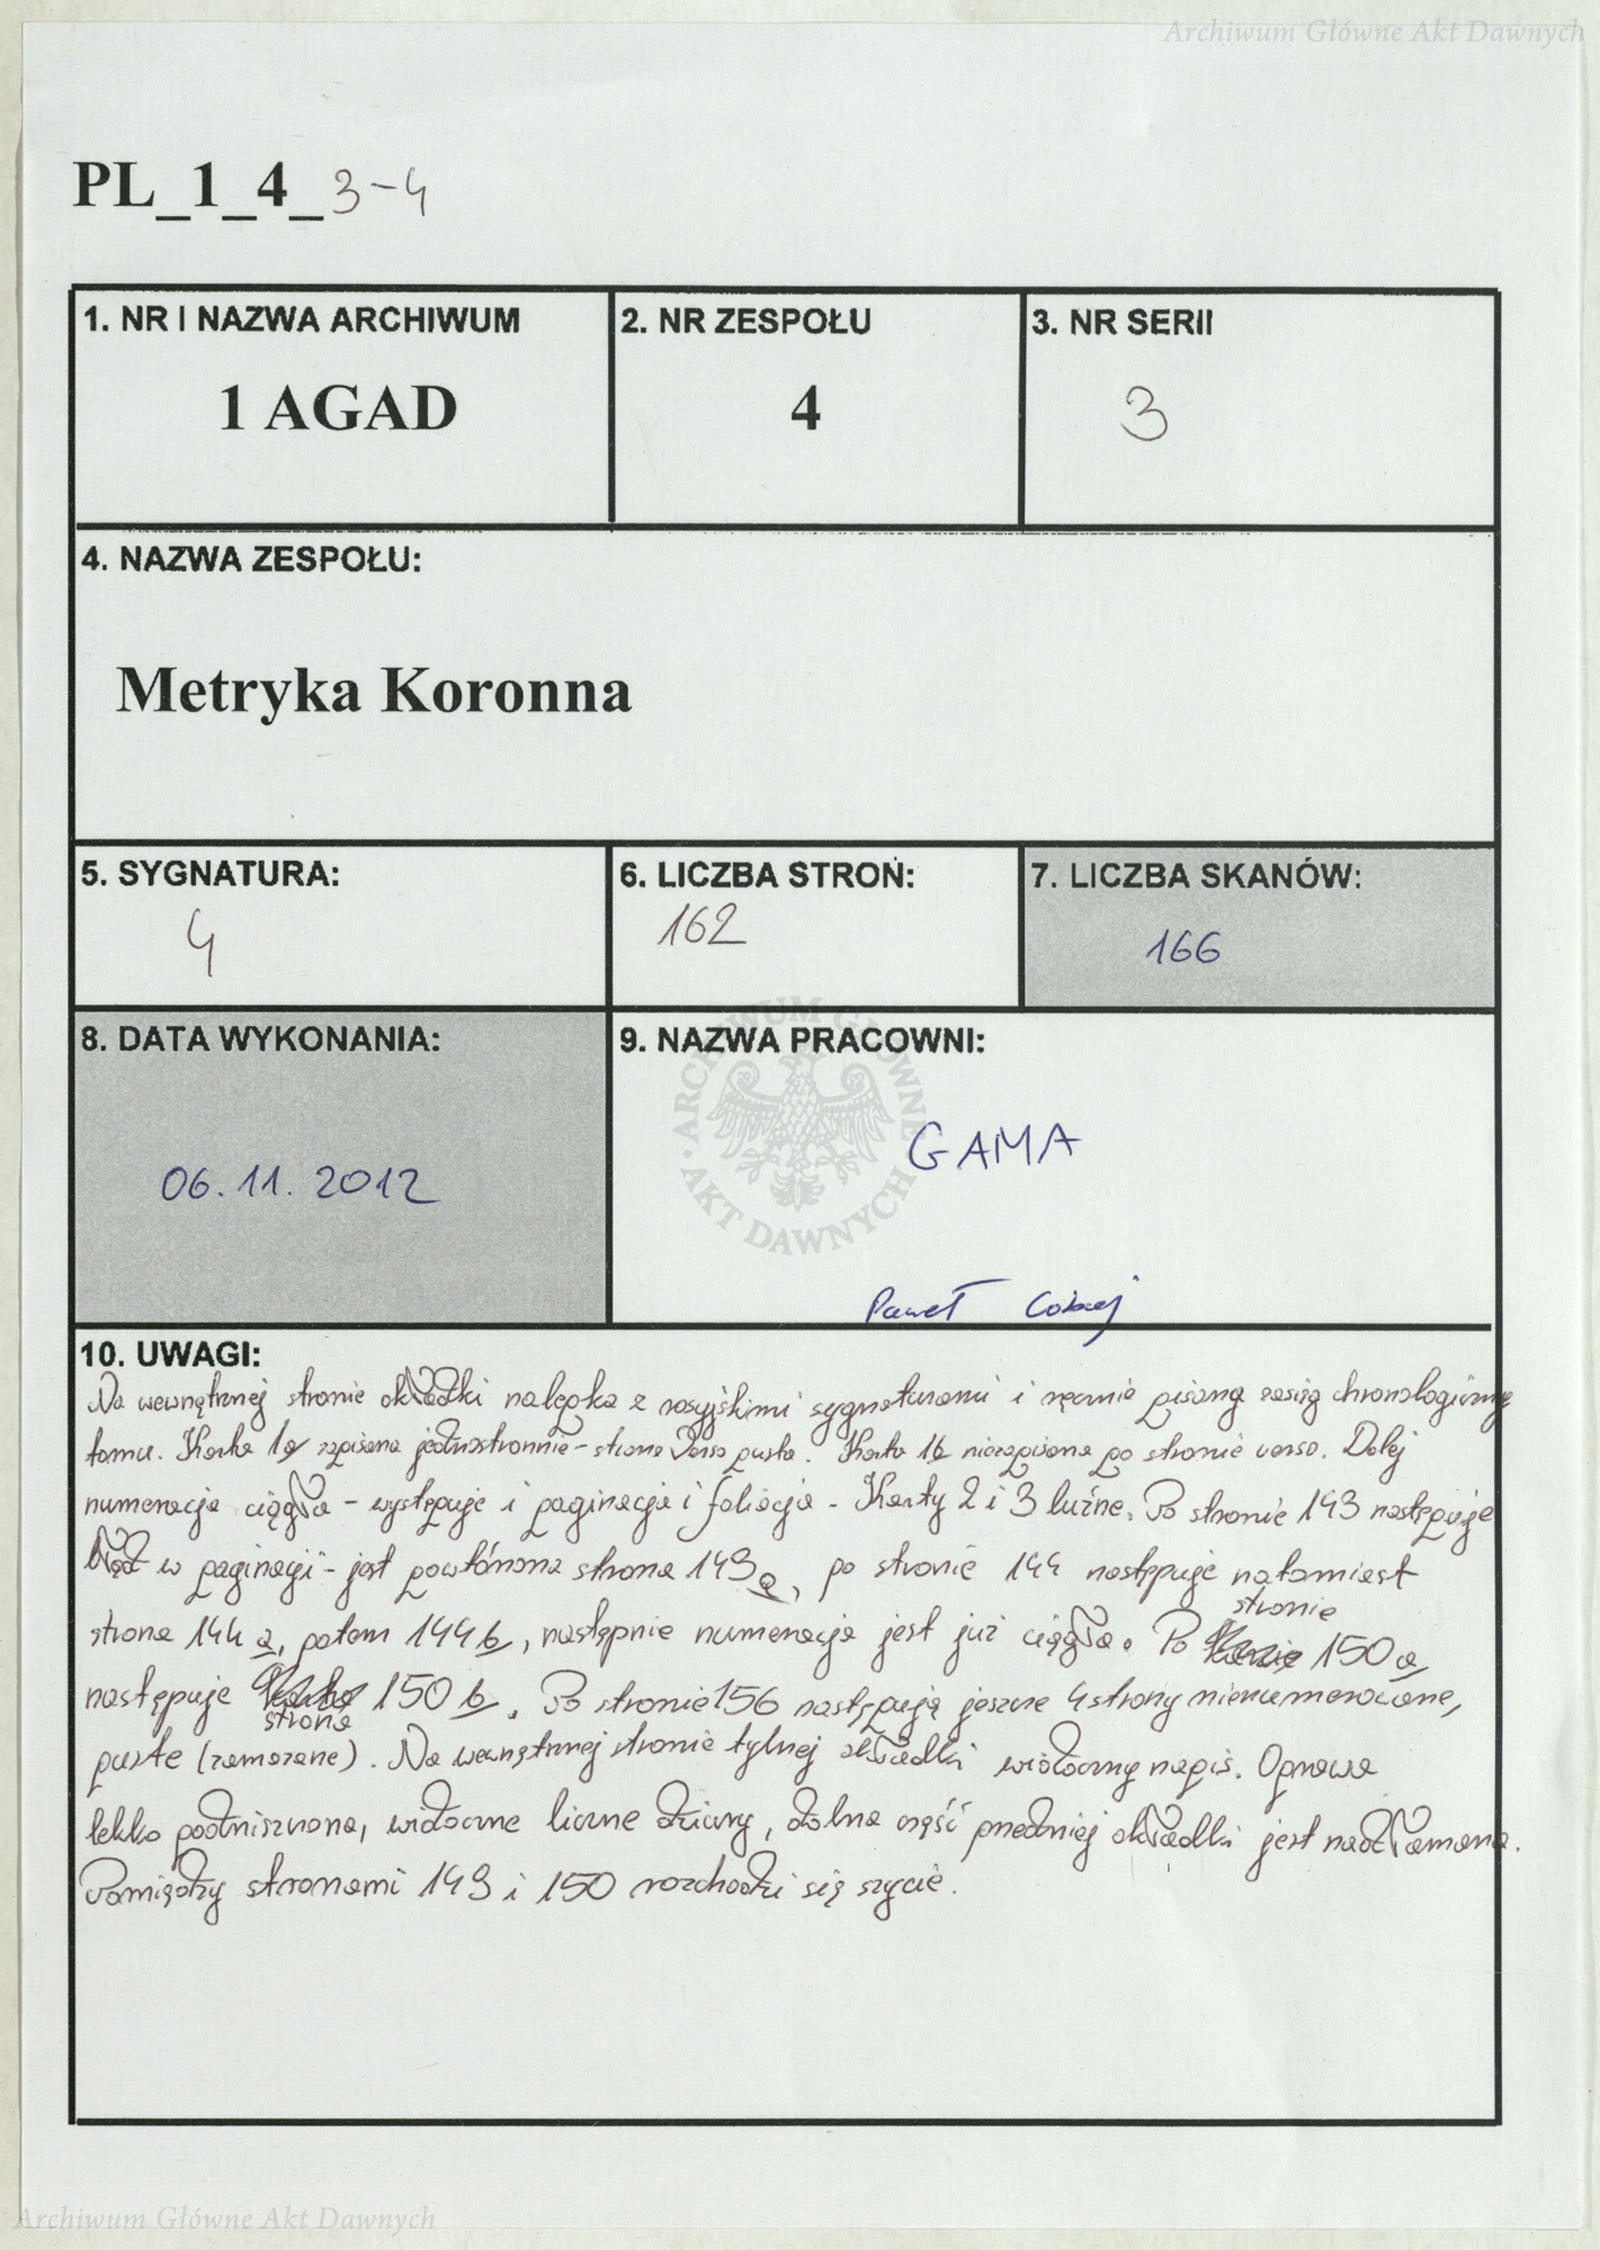 Archiwum Główne Akt Dawnych
PL_1_4_3-4
1. NR I NAZWA ARCHIWUM
1 AGAD
2. NR ZESPOŁU
4
3. NR SERII
3
4. NAZWA ZESPOŁU:
Metryka Koronna
5. SYGNATURA:
4
6. LICZBA STRON:
162
7. LICZBA SKANÓW:
166
8. DATA WYKONANIA:
06.11.2012
9. NAZWA PRACOWNI:
GAMA
Paweł
ARCHIWUM GŁÓWNE · AKT DAWNYCH ·
10. UWAGI:
Na wewnętrznej stronie okładki nalepka z rosyjskimi sygnaturami i ręcznie pisaną zasięg chronologiczny
tomu. Karta 1a zapisana jednostronnie - strona verso pusta. Karta 1b niezapisana po stronie verso. Dalej
numeracja ciągła - występuje i paginacja i foliacja. Karty 2 i 3 luźne. Po stronie 143 następuje
błąd w paginacji - jest powtórzona strona 143a, po stronie 144 następuje natomiast
strona 144a, potem 144b, następnie numeracja jest już ciągła. Po stronie 150a
następuje strona 150b. Po stronie 156 następują jeszcze 4 strony nienumerowane,
puste (zamazane). Na wewnętrznej stronie tylnej okładki widoczny napis. Oprawa
lekko podniszczona, widoczne liczne dziury, dolna część przedniej okładki jest nadłamana.
Pomiędzy stronami 149 i 150 rozchodzi się szycie.
Archiwum Główne Akt Dawnych